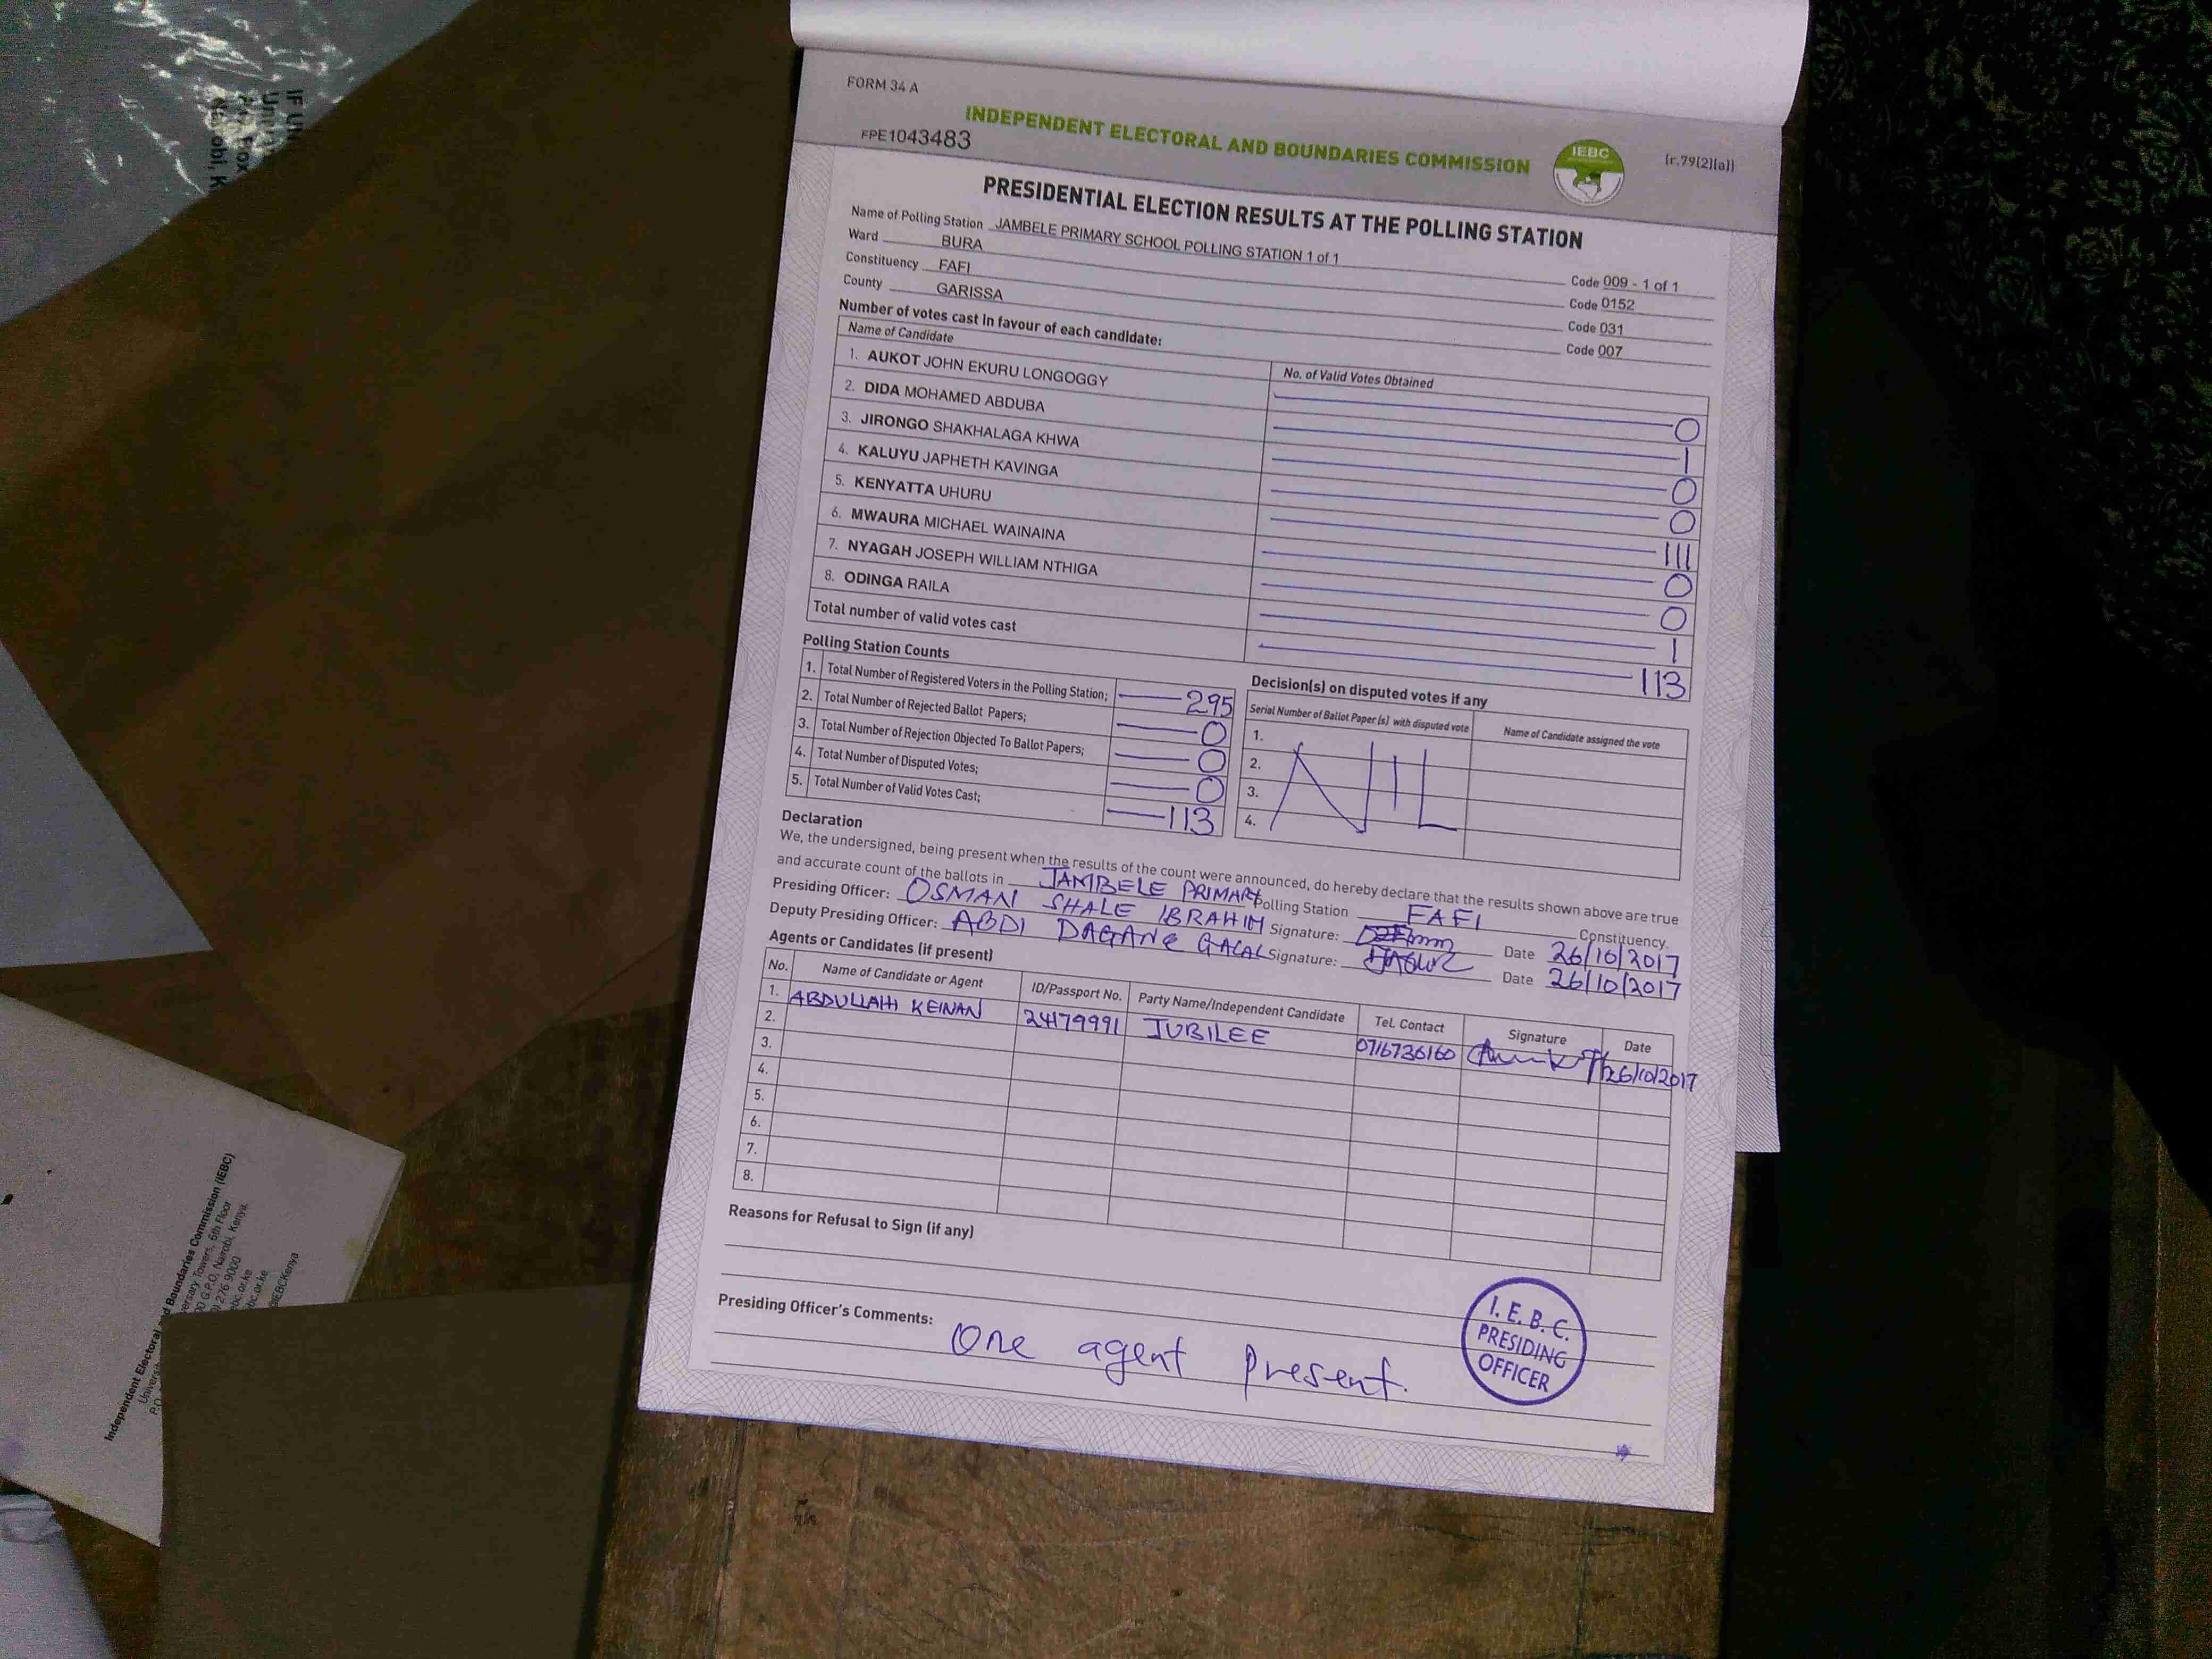 FORM 34 A
INDEPENDENT ELECTORAL AND BOUNDARIES COMMISSION
IEBC
[r.79(2)(a)]
FPE1043483
PRESIDENTIAL ELECTION RESULTS AT THE POLLING STATION
Name of Polling Station JAMBELE PRIMARY SCHOOL POLLING STATION 1 of 1 Code 009 - 1 of 1
Ward BURA Code 0152
Constituency FAFI Code 031
County GARISSA Code 007
Number of votes cast in favour of each candidate:
Name of Candidate No. of Valid Votes Obtained
1. AUKOT JOHN EKURU LONGOGGY 0
2. DIDA MOHAMED ABDUBA 1
3. JIRONGO SHAKHALAGA KHWA 0
4. KALUYU JAPHETH KAVINGA 0
5. KENYATTA UHURU 111
6. MWAURA MICHAEL WAINAINA 0
7. NYAGAH JOSEPH WILLIAM NTHIGA 0
8. ODINGA RAILA 1
Total number of valid votes cast 113
Polling Station Counts
1. Total Number of Registered Voters in the Polling Station; 295
2. Total Number of Rejected Ballot Papers; 0
3. Total Number of Rejection Objected To Ballot Papers; 0
4. Total Number of Disputed Votes; 0
5. Total Number of Valid Votes Cast; 113
Decision(s) on disputed votes if any
Serial Number of Ballot Paper (s) with disputed vote Name of Candidate assigned the vote
1.
2.
3.
4.
NIL
Declaration
We, the undersigned, being present when the results of the count were announced, do hereby declare that the results shown above are true
and accurate count of the ballots in JAMBELE PRIMARY Polling Station FAFI Constituency.
Presiding Officer: OSMAN SHALE IBRAHIM Signature: Date 26/10/2017
Deputy Presiding Officer: ABDI DAGANE GALAL Signature: Date 26/10/2017
Agents or Candidates (if present)
No. Name of Candidate or Agent ID/Passport No. Party Name/Independent Candidate Tel. Contact Signature Date
1. ABDULLAHI KEINAN 24179991 JUBILEE 0716736160 26/10/2017
2.
3.
4.
5.
6.
7.
8.
Reasons for Refusal to Sign (if any)
Presiding Officer's Comments: One agent present.
I. E. B. C.
PRESIDING
OFFICER
Independent Electoral and Boundaries Commission (IEBC)
6th Floor
G.P.O, Nairobi, Kenya
276 9000